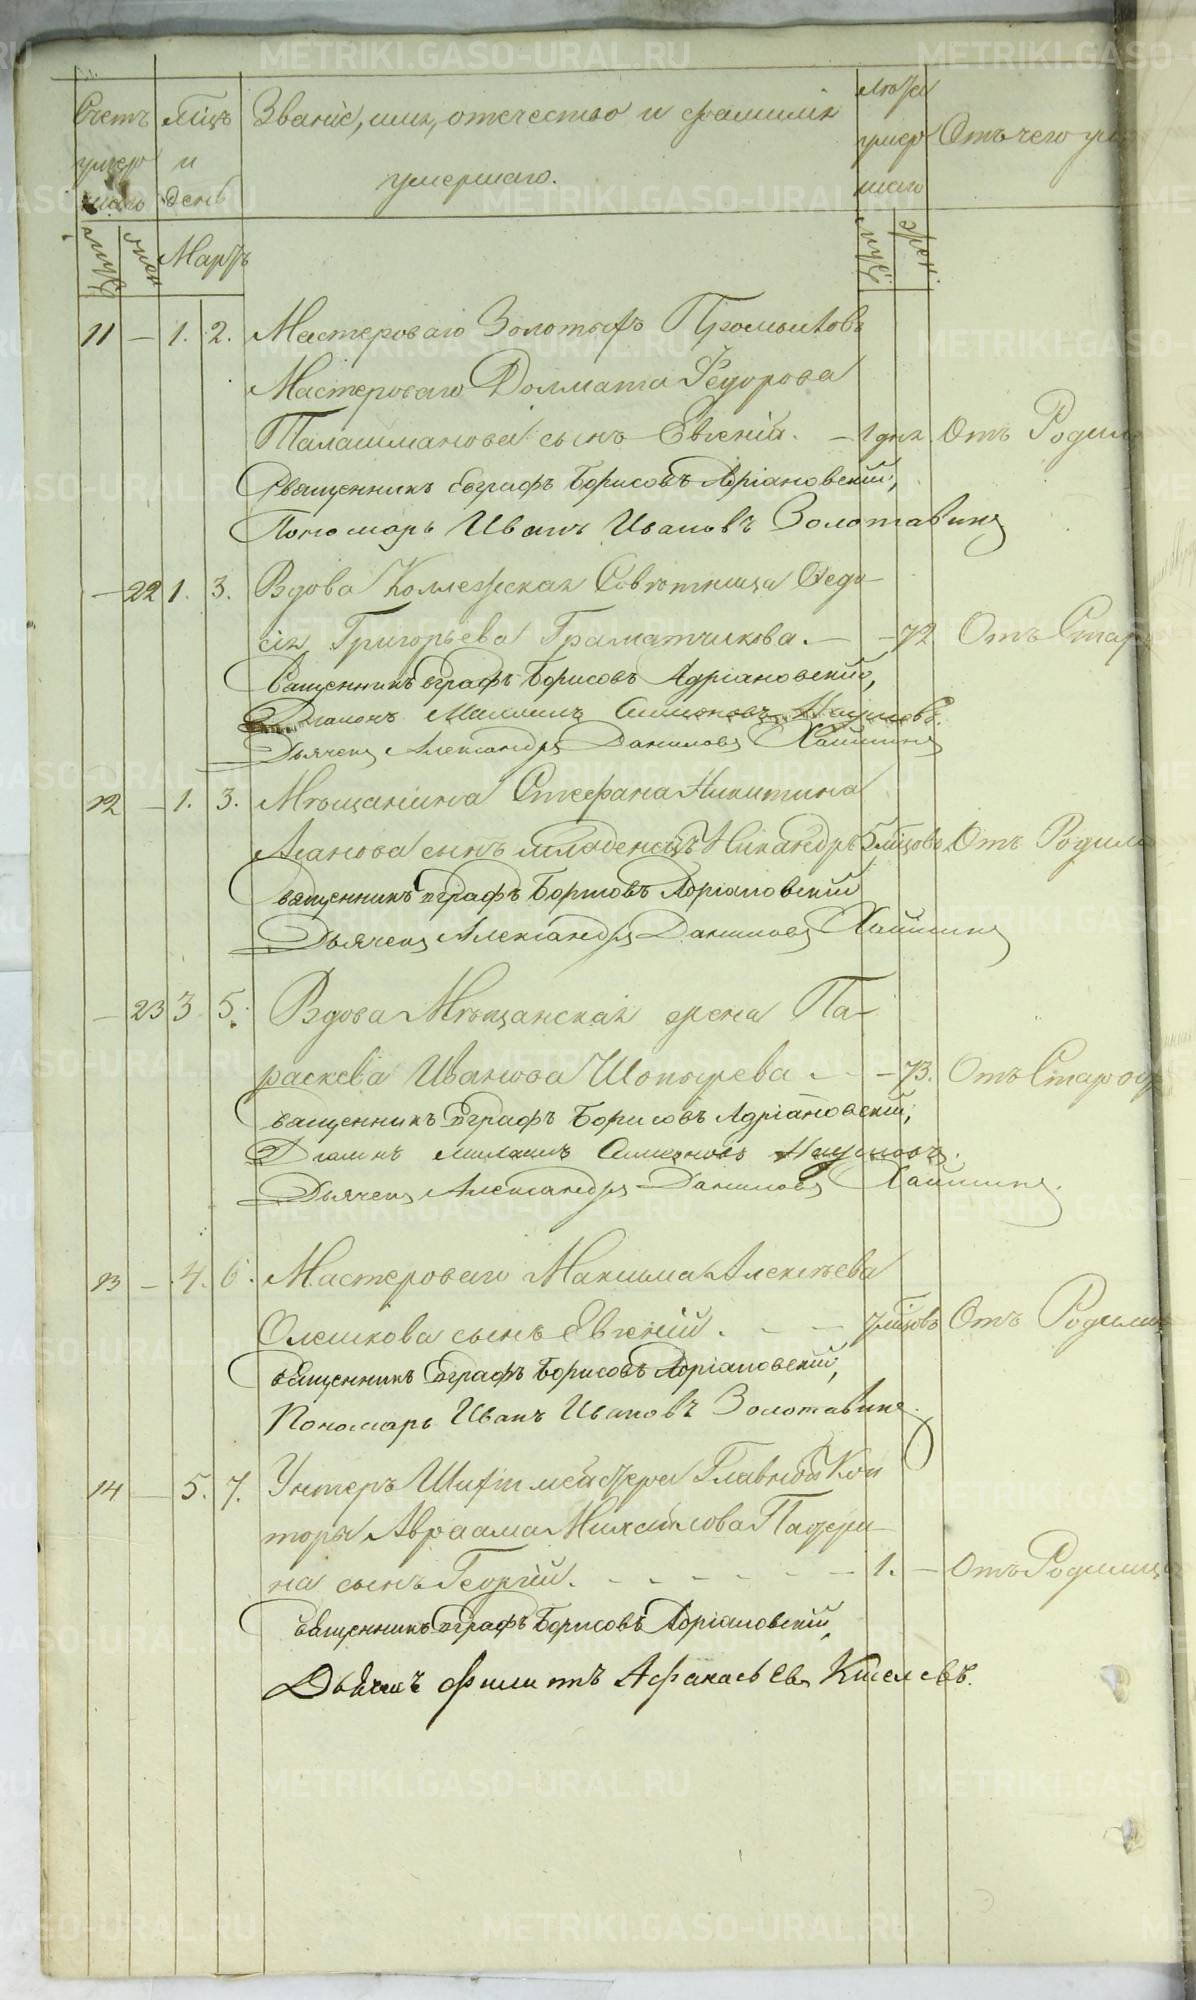 Счетъ умер шаго
Мѣцъ и день
Званіе, имя, отечество и фамилія умершаго.
Лѣта умер шаго
Отъ чего
муж. жен. Мартъ муж. жен.
11 — 1. 2. Мастероваго Золотыхъ Промысловъ
Мастероваго Долмата Ѳедорова
Талашманова сынъ Евгеній. — 1 дня Отъ Родим
Священникъ Евграфъ Борисовъ Адріановскій,
Пономарь Иванъ Ивановъ Золотавинъ
— 22 1. 3. Вдова Коллежская Совѣтница Ѳедо-
сія Григорьева Граматчикова. — — 72 Отъ Стар
Священникъ Евграфъ Борисовъ Адріановскій,
Діаконъ Михаилъ Симеоновъ Наумовъ.
Дьячекъ Александръ Даниловъ
12 — 1. 3. Мѣщанина Стефана Никитина
сынъ младенецъ Никандръ 5 мѣцовъ Отъ Родим
Священникъ Евграфъ Борисовъ Адріановскій
Дьячекъ Александръ Даниловъ
— 23 3 5. Вдова Мѣщанская жена Па-
раскева Иванова Шопырева — — 73. Отъ Старос
Священникъ Евграфъ Борисовъ Адріановскій,
Діаконъ Михаилъ Симеоновъ Наумовъ.
Дьячекъ Александръ Даниловъ
13 — 4. 6. Мастероваго Максима Алексѣева
Олешкова сынъ Евгеній. — — 7 мѣцовъ Отъ Родим
Священникъ Евграфъ Борисовъ Адріановскій,
Пономарь Иванъ Ивановъ Золотавинъ.
14 — 5. 7. Унтеръ Шихтмейстера Главной Кон
торы Авраама Михайлова Падери-
на сынъ Георгій. — — — — 1. — Отъ Родимца
Священникъ Евграфъ Борисовъ Адріановскій,
Дьячекъ Филиппъ Афанасьевъ Киселевъ.
METRIKI.GASO-URAL.RU